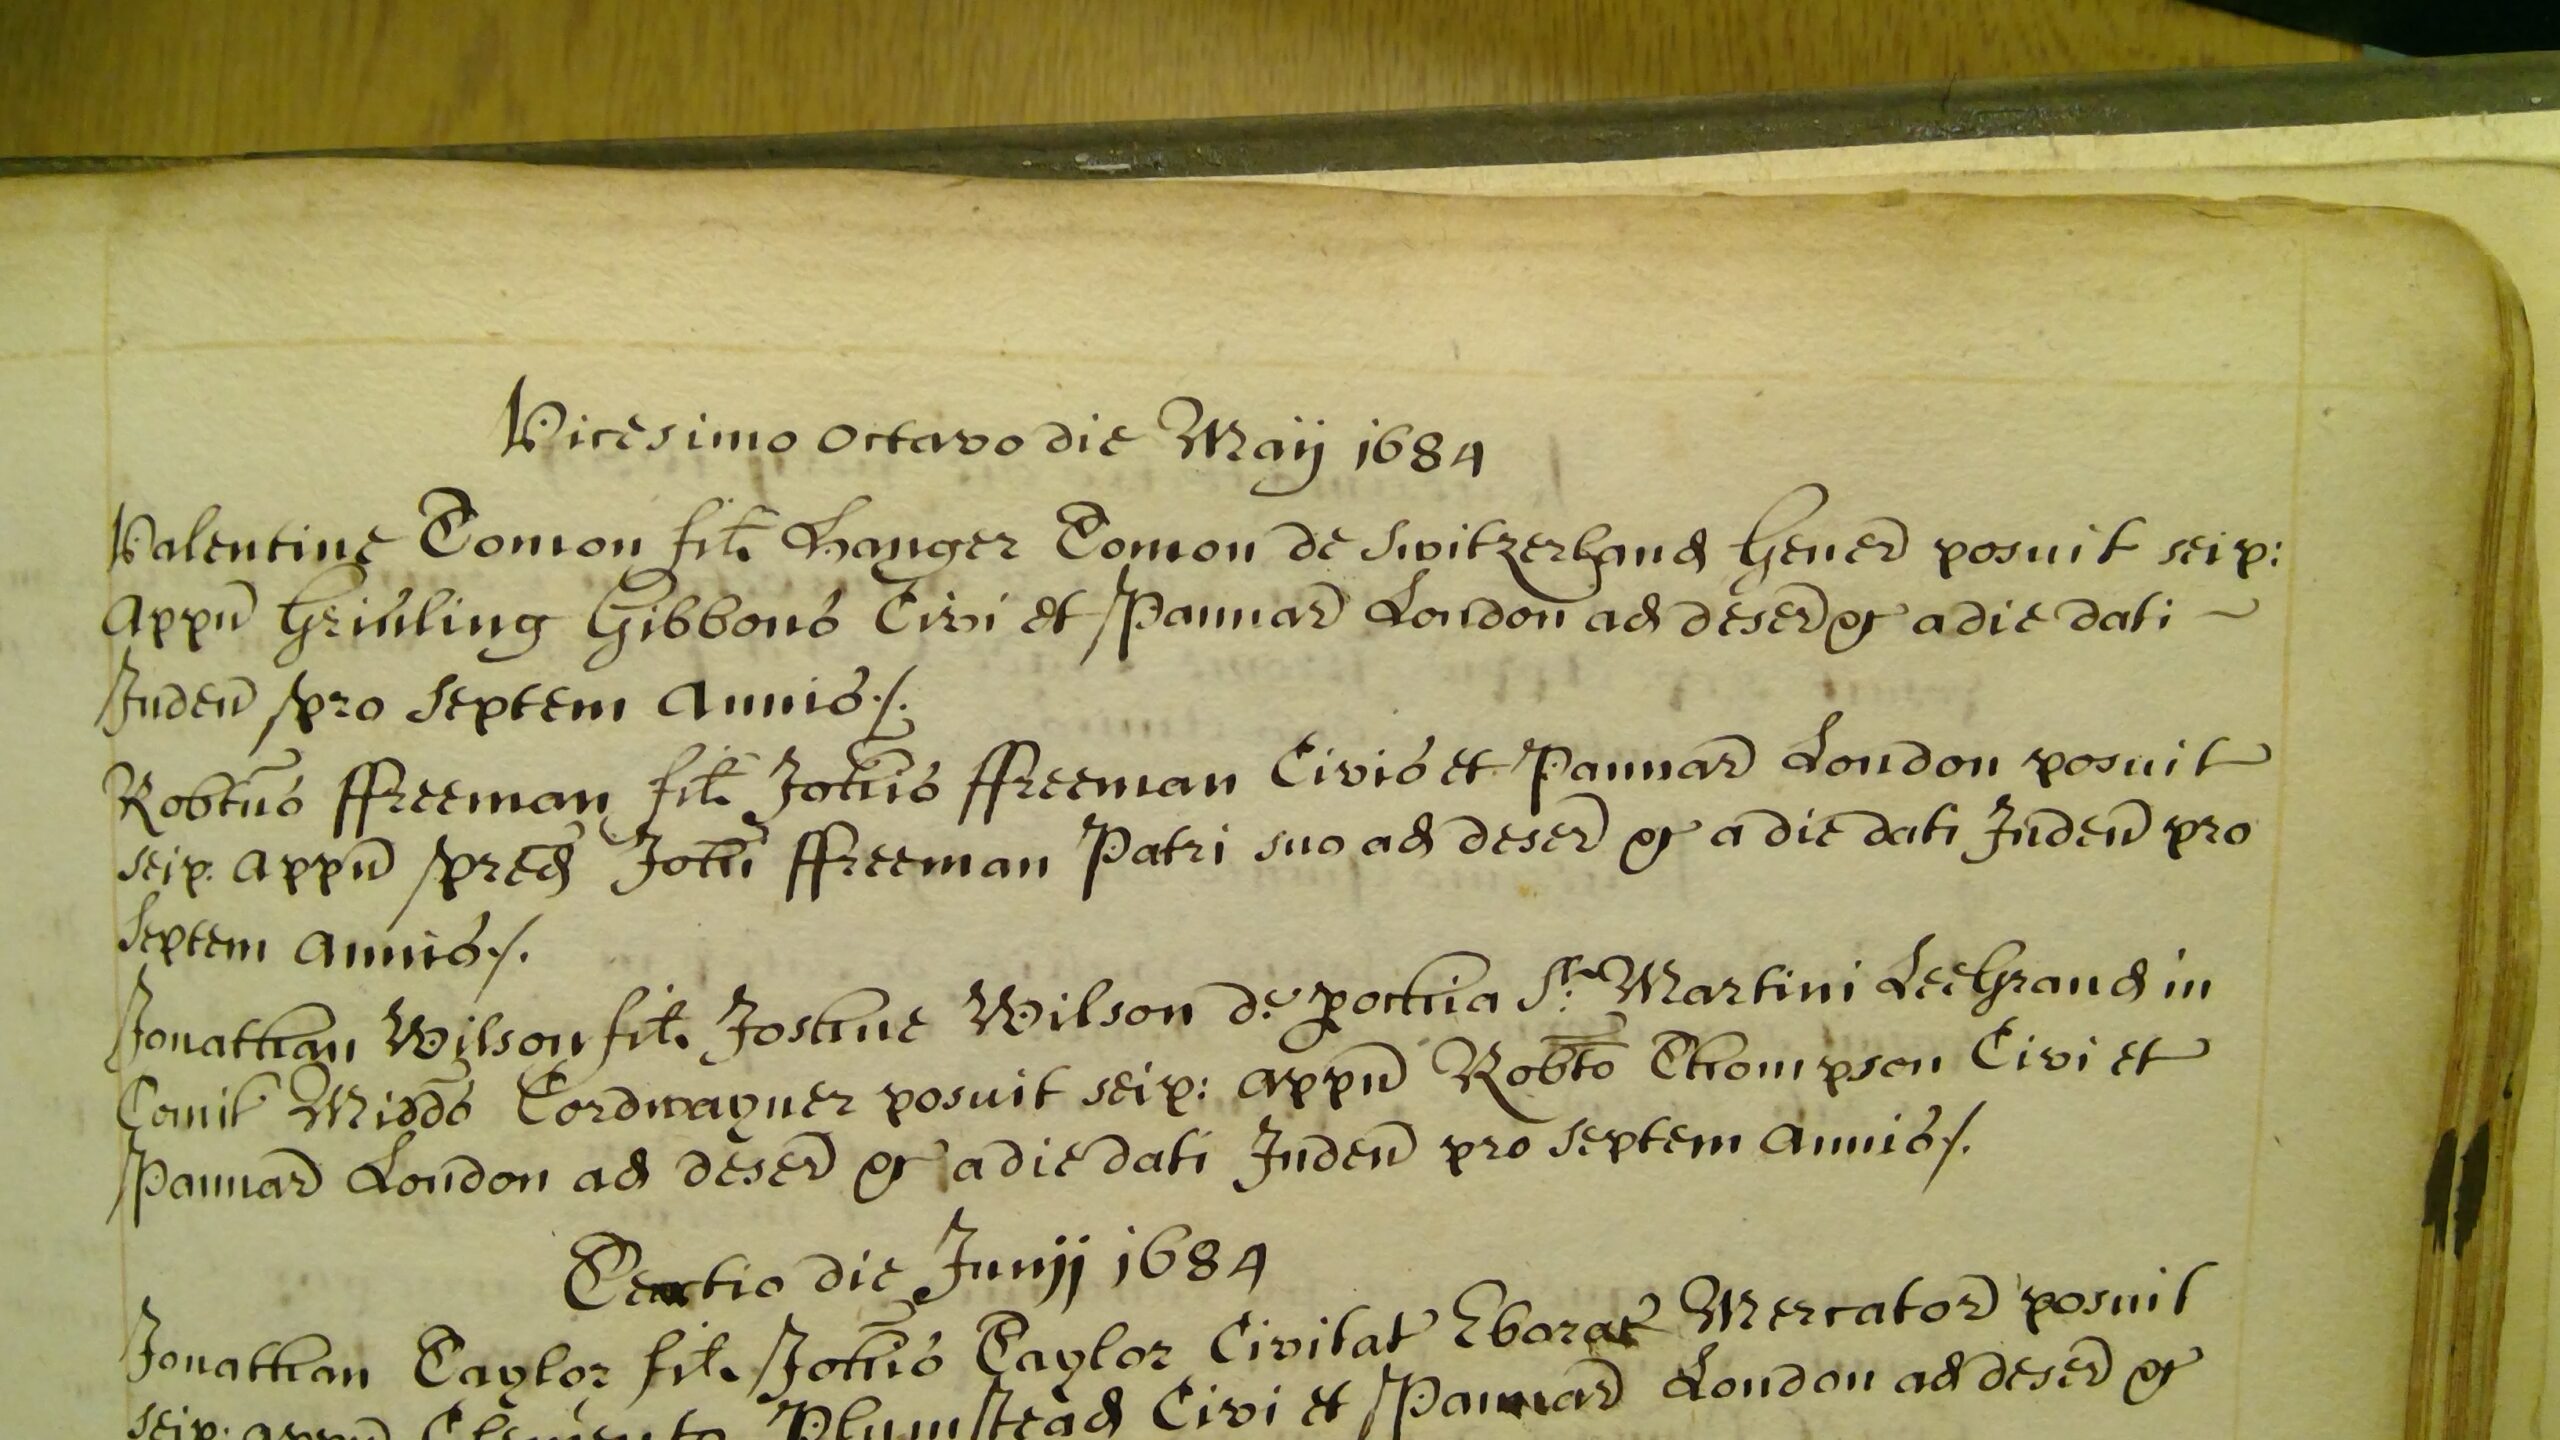 Vicesimo Octavo die Maij 1684
Valentine Tomon fil. Hanger Tomon de Switzerland Gener̄ posuit seip:
Appn̄ Grinling Gibbons Civi et Pannar̄ London ad deser̄ &c a die dati ~
Inden̄ pro Septem Annis./.
Robtus̄ ffreeman fil. Johis̄ ffreeman Civis et Pannar̄ London posuit
seip. Appn̄ pred Johi̅ ffreeman Patri suo ad deser̄ &c a die dati Inden̄ pro
Septem Annis./.
Jonathan Wilson fil. Joshue Wilson de pochia St. Martini LeeGrand in
Comit Midds̄ Cordwayner posuit seip: Appn̄ Robto̅ Thompson Civi et
Pannar̄ London ad deser̄ &c a die dati Inden̄ pro Septem Annis/.
Tertio die Junij 1684
Jonathan Taylor fil. Johis̄ Taylor Civitat Eborac Mercator̄ posuit
seip: Appn̄ Clemento Plumstead Civi et Pannar̄ London ad deser̄ &c